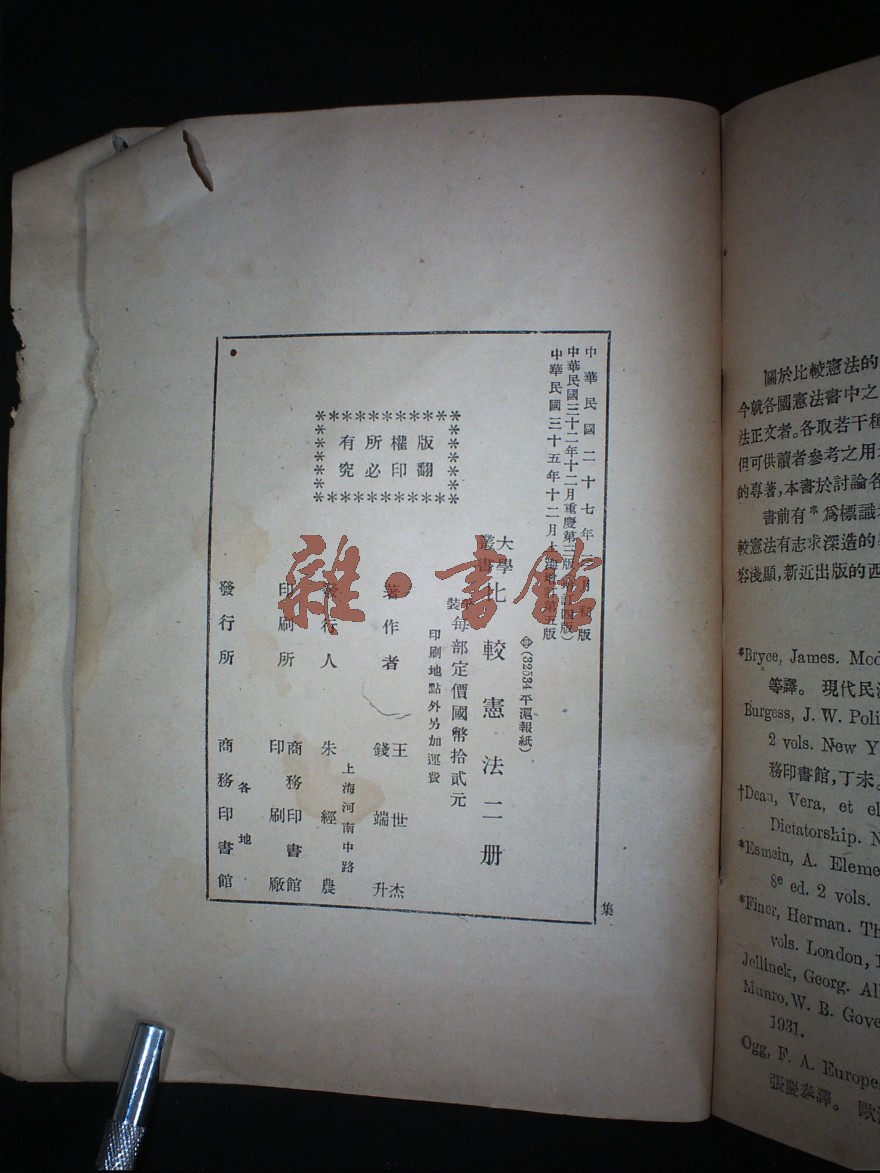 中華民國二十七年 月 版
中華民國三十二年十二月重慶第三版 訂四版)
中華民國三十五年十二月上海 第五版
大學
叢書
比較憲法二册
㊥(32534平滬報紙)
裝 每部定價國幣拾貳元
印刷地點外另加運費
版權所有
翻印必究
著作者
王世杰
錢端升
發行人
上海河南中路
朱經農
印刷所
商務印書館
印刷廠
發行所
各地
商務印書館
集
雜·書館
關於比較憲法的
今就各國憲法書中之
法正文者。各取若干種
但可供讀者參考之用
的專著,本書於討論各
書前有*爲標識
較憲法有志求深造的
容淺顯,新近出版的西
*Bryce, James. Mod
等譯。 現代民
Burgess, J. W. Poli
2 vols. New Y
務印書館,丁未。
†Dean, Vera, et el
Dictatorship. N
*Esmein, A. Eleme
8e ed. 2 vols.
*Finer, Herman. Th
vols. London, 1
Jellinek, Georg. Al
Munro, W. B. Gove
1931.
Ogg, F. A. Europe
張慰泰譯。 歐